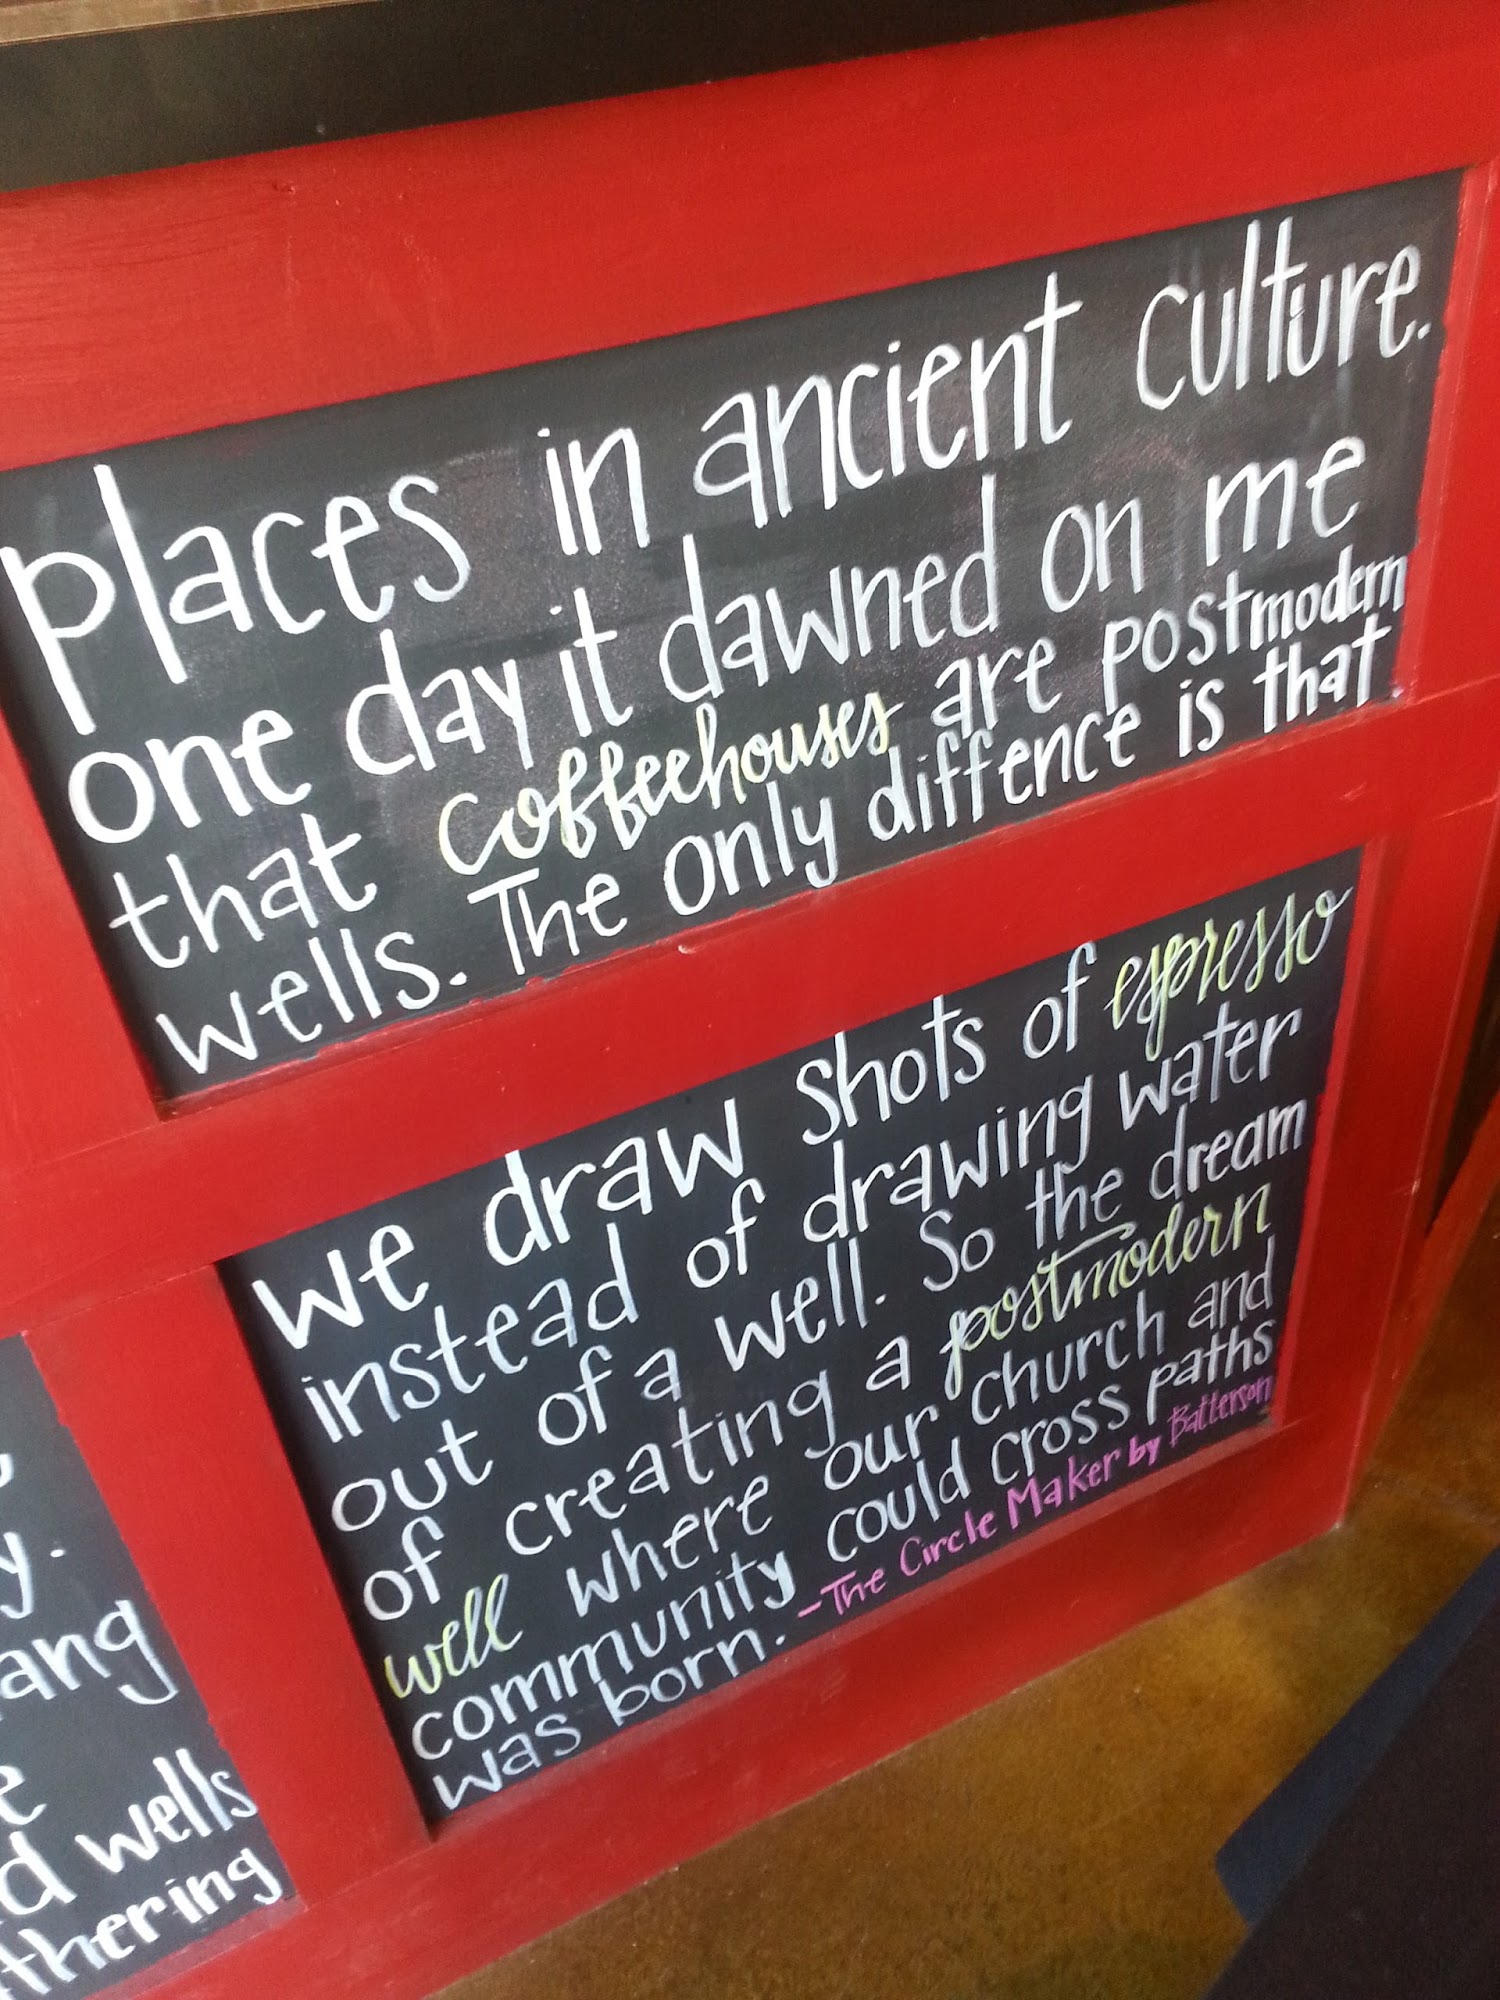 places in ancient culture.
one day it dawned on me
that coffeehouses are postmodern
wells. The only diffence is that
we draw shots of espresso
instead of drawing water
out of a well. So the dream
of creating a postmodern
well where our church and
community could cross paths
was born. -The Circle Maker by Batterson
y.
ang
e
d wells
thering